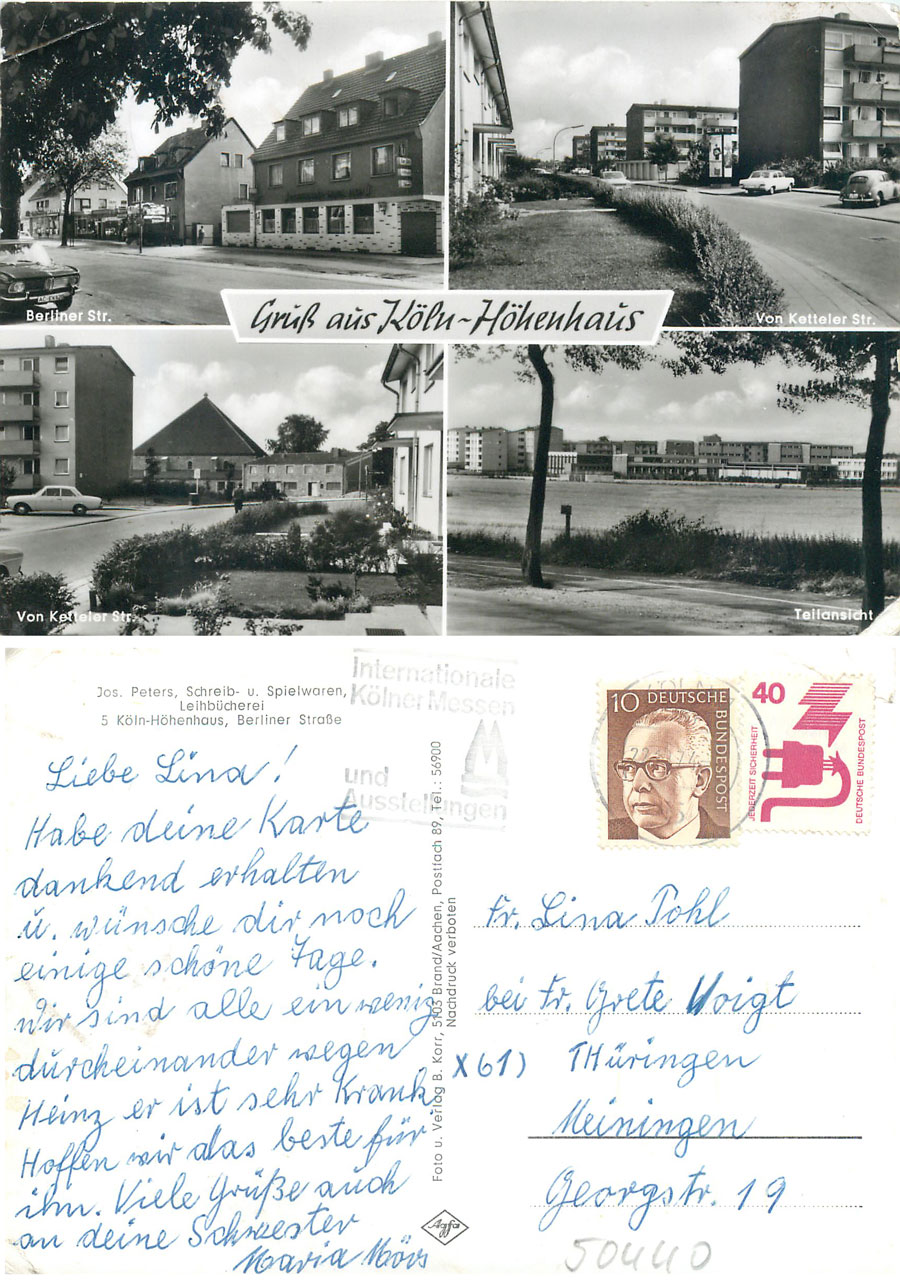 Berliner Str.
Gruß aus Köln-Höhenhaus
Von Ketteler Str.
Von Ketteler Str.
Teilansicht
Jos. Peters, Schreib- u. Spielwaren,
Leihbücherei
5 Köln-Höhenhaus, Berliner Straße
Liebe Lina!
Habe deine Karte
dankend erhalten
u. wünsche dir noch
einige schöne Tage.
Wir sind alle ein wenig
durcheinander wegen
Heinz er ist sehr Krank.
Hoffen wir das beste für
ihn. Viele Grüße auch
an deine Schwester
Maria Mörs
Foto u. Verlag B. Korr, 5103 Brand/Aachen, Postfach 89, Tel.: 56900
Nachdruck verboten
Agfa
Internationale
Kölner Messen
und
Ausstellungen
10 DEUTSCHE
BUNDESPOST
40
JEDERZEIT SICHERHEIT
DEUTSCHE BUNDESPOST
Fr. Lina Pohl
bei Fr. Grete Voigt
X 61) THüringen
Meiningen
Georgstr. 19
50440